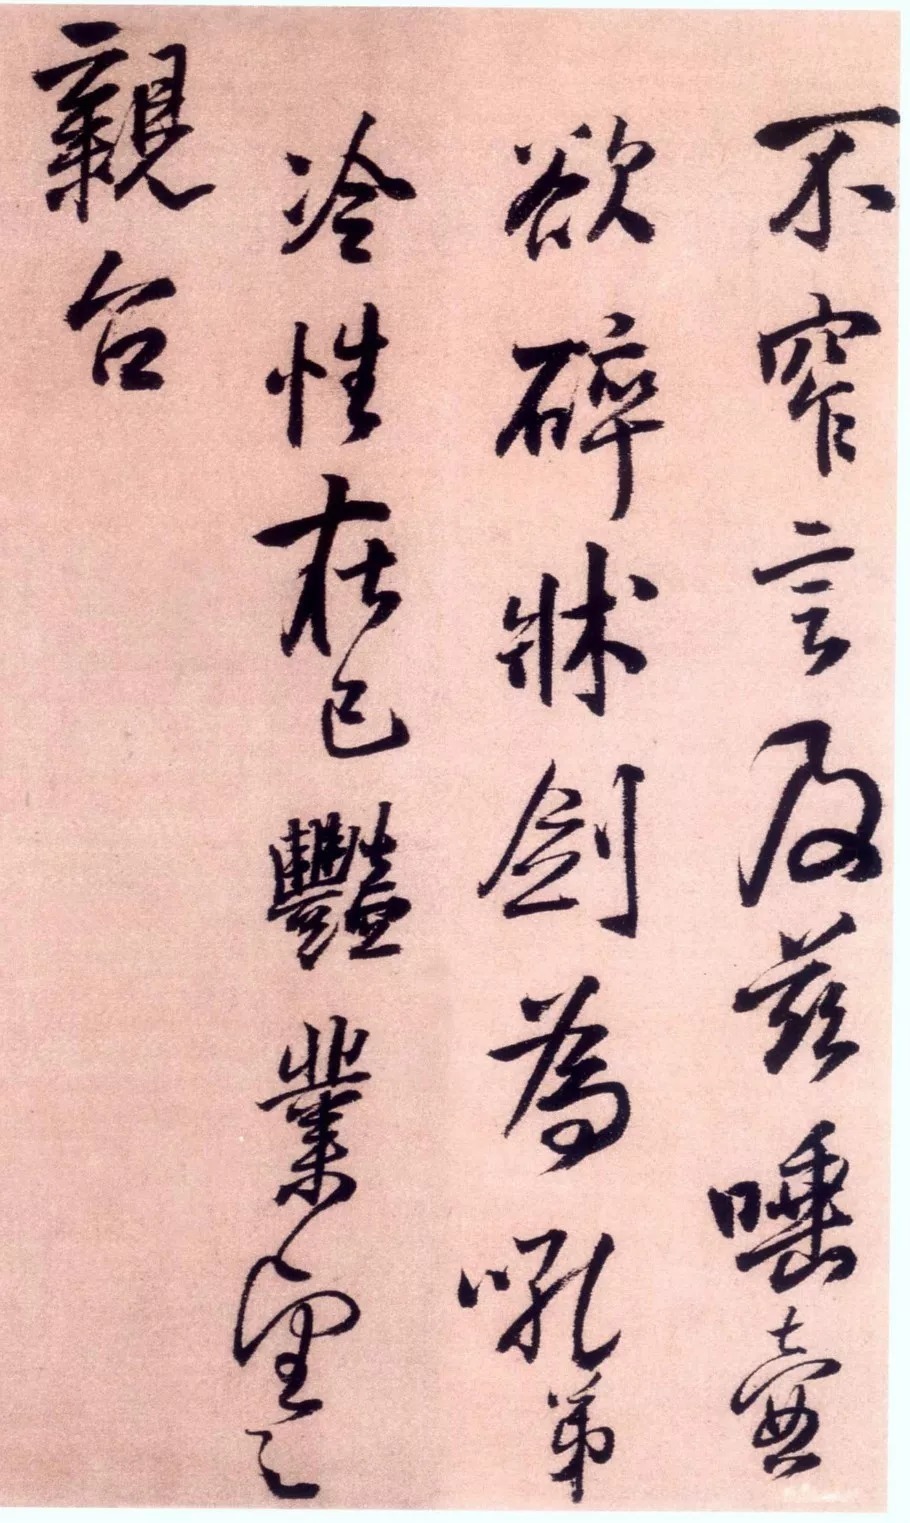 不窄言及茲唾壺
欲碎牀劍為吼弟
冷性在已豔業望之
親台